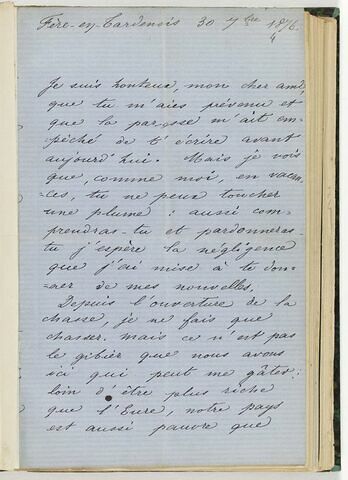 Fère-en-Tardenois 30 7bre 1876.
4
Je suis honteux, mon cher ami,
que tu m'aies prévenu et
que la paresse m'ait em-
pêché de t'écrire avant
aujourd'hui. Mais je vois
que, comme moi, en vacan-
-ces, tu ne peux toucher
une plume : aussi com-
prendras-tu et pardonneras-
tu j'espère la négligence
que j'ai mise à te don-
-ner de mes nouvelles.
Depuis l'ouverture de la
chasse, je ne fais que
chasser. mais ce n'est pas
le gibier que nous avons
ici qui peut me gâter :
loin d'être plus riche
que l'Eure, notre pays
est aussi pauvre que